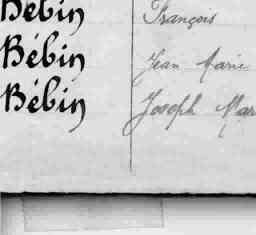 Bébin François
Bébin Jean Marie
Bébin Joseph Mar